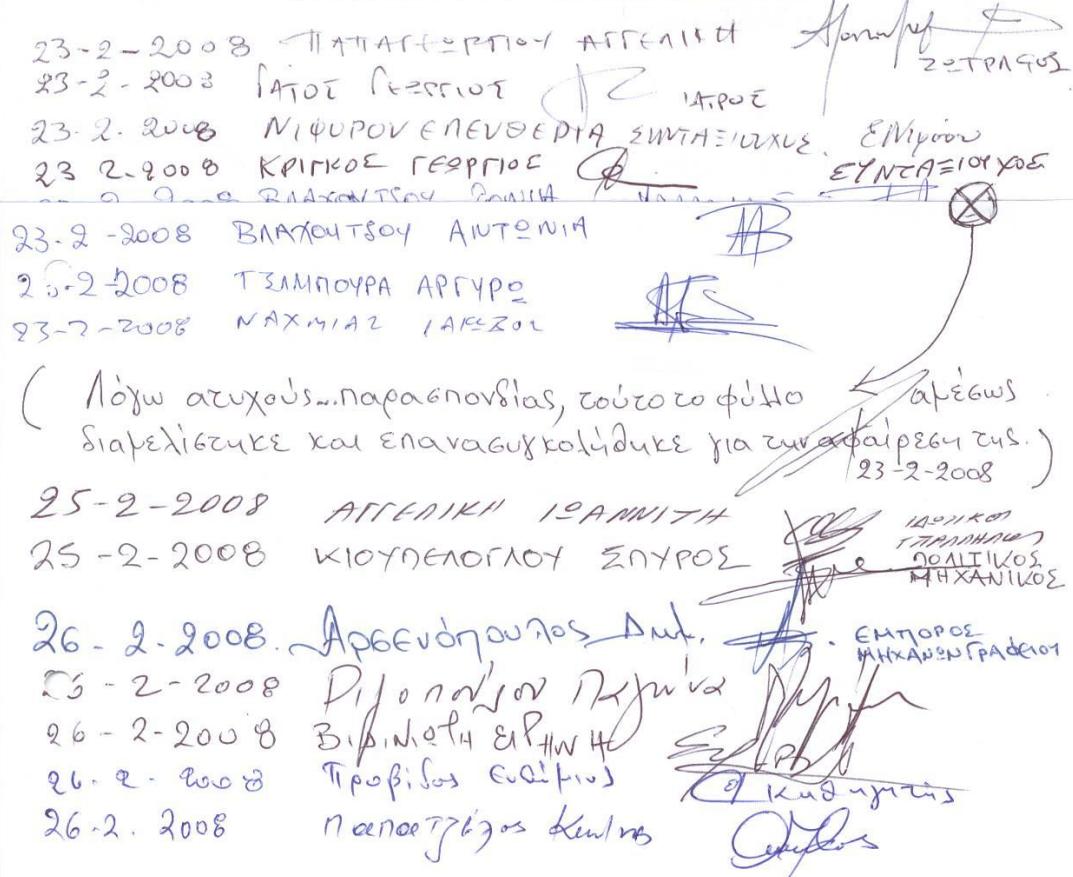 23-2-2008 ΠΑΠΑΓΕΩΡΓΙΟΥ ΑΓΓΕΛΙΚΗ ΖΩΓΡΑΦΟΣ
23-2-2008 ΓΑΤΟΣ ΓΕΩΡΓΙΟΣ ΙΑΤΡΟΣ
23.2.2008 ΝΙΦΥΡΟΥ ΕΛΕΥΘΕΡΙΑ ΣΥΝΤΑΞΙΟΥΧΟΣ
23 2.2008 ΚΡΙΓΚΟΣ ΓΕΩΡΓΙΟΣ ΣΥΝΤΑΞΙΟΥΧΟΣ
23-2-2008 ΒΛΑΧΟΥΤΣΟΥ ΑΝΤΩΝΙΑ
23-2-2008 ΤΣΑΜΠΟΥΡΑ ΑΡΓΥΡΩ
23-2-2008 ΝΑΧΜΙΑΣ ΙΑΚΩΒΟΣ
( Λόγω ατυχούς...παρασπονδίας, τούτο το φύλλο αμέσως
διαμελίστηκε και επανασυγκολήθηκε για την αφαίρεση της.
23-2-2008 )
25-2-2008 ΑΓΓΕΛΙΚΗ ΙΩΑΝΝΙΤΗ ΙΔΩΤΙΚΟΣ ΥΠΑΛΛΗΛΟΣ
25-2-2008 ΚΙΟΥΠΕΛΟΓΛΟΥ ΣΠΥΡΟΣ ΠΟΛΙΤΙΚΟΣ ΜΗΧΑΝΙΚΟΣ
26-2-2008. Αρσενόπουλος Δημ. ΕΜΠΟΡΟΣ ΜΗΧΑΝΩΝ ΓΡΑΦΕΙΟΥ
26-2-2008
26-2-2008 ΕΙΡΗΝΗ
26-2-2008 Προβίδας Ευθύμιος Καθηγητής
26.2.2008